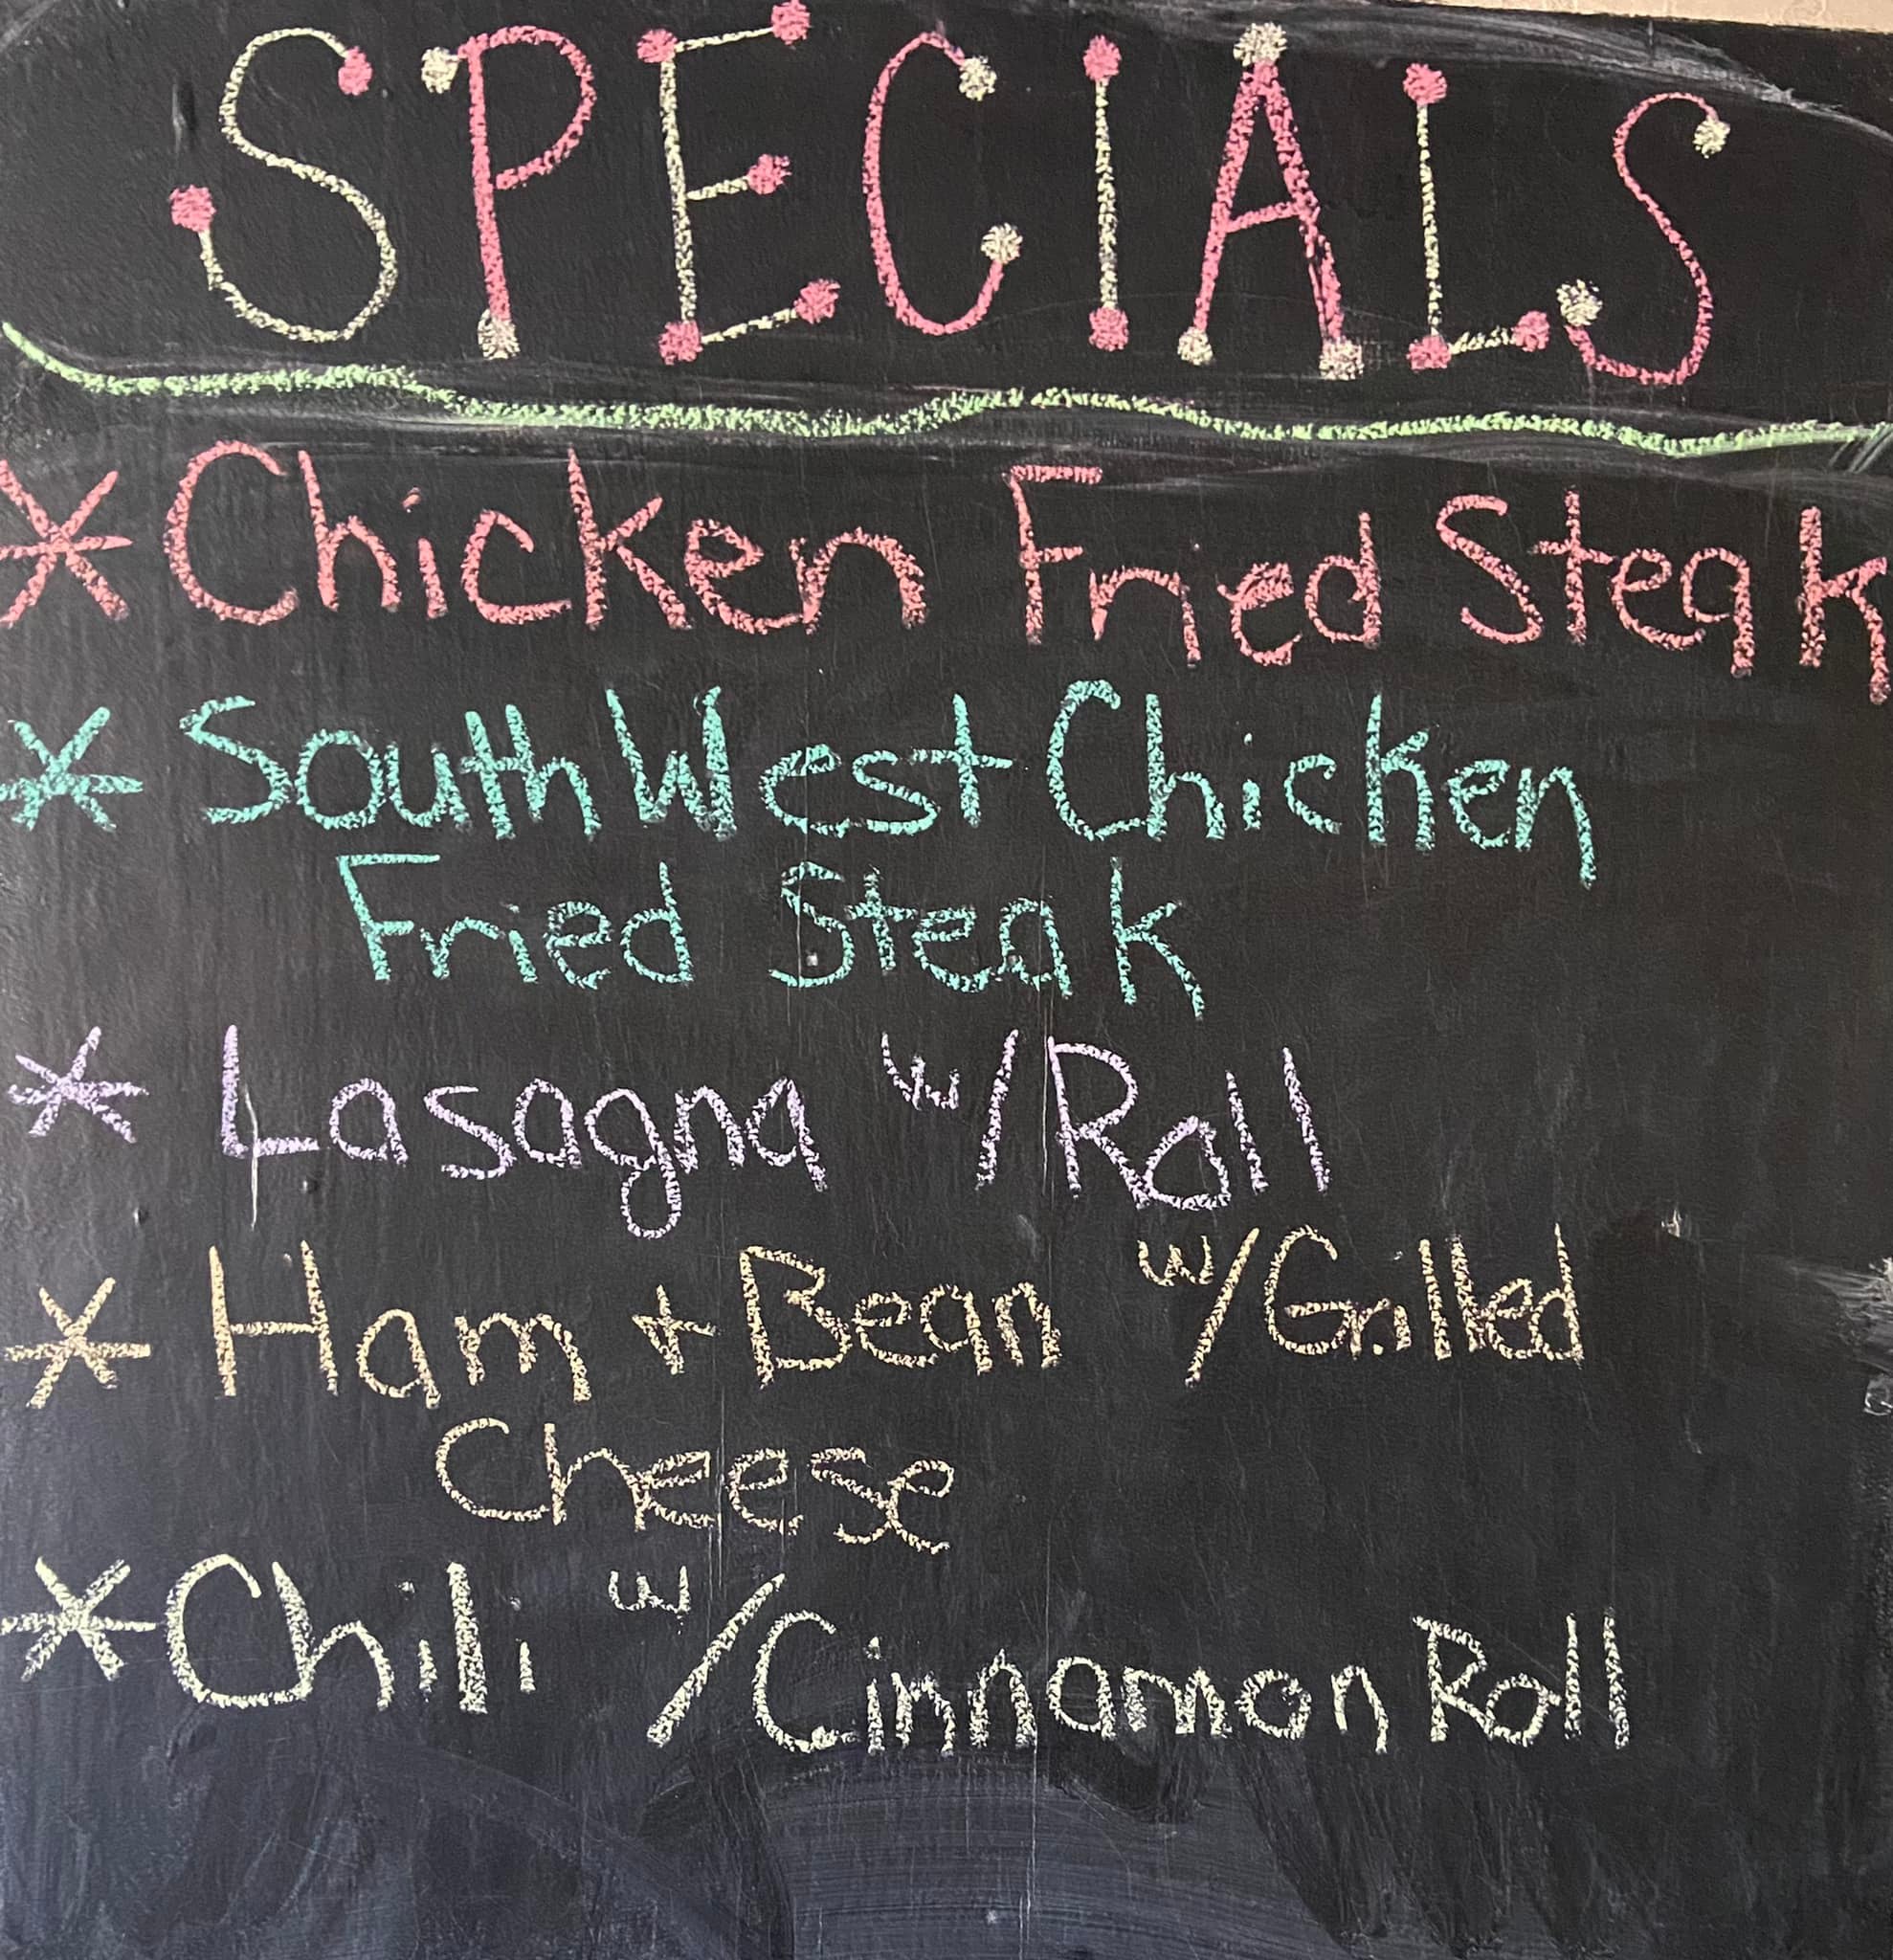 SPECIALS
* Chicken Fried Steak
* SouthWest Chicken
Fried Steak
* Lasagna w/Roll
* Ham + Bean w/Grilled
Cheese
* Chili w/Cinnamon Roll